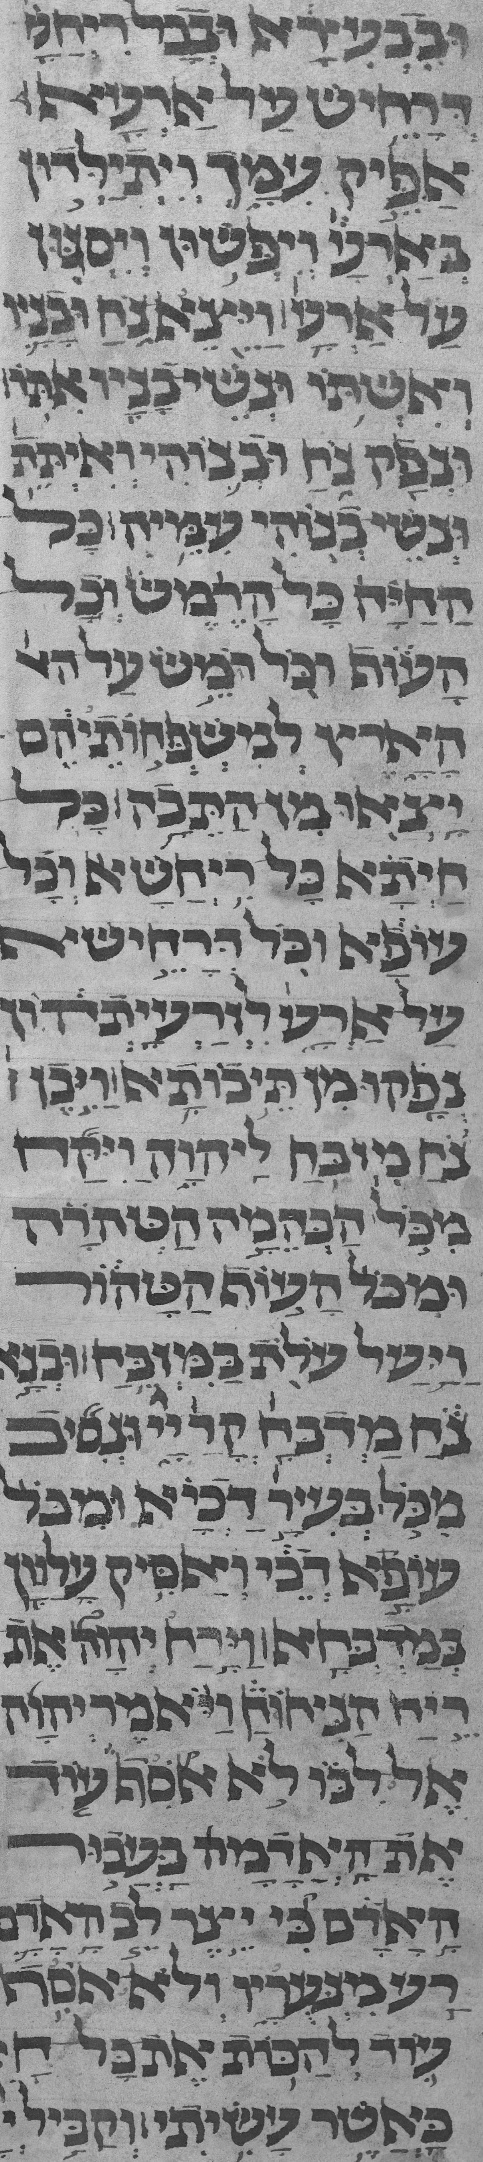 ובבעירא ובכל ריחש
דרחיש על ארעא
אפיק עימך ויתילדון
בארעי ויפשון ויסגון
על ארעי וייצא נח ובניו
ואשתו ונשי בניו אתו
ונפק נח ובנוהי ואיתת
ונשי בנוהי עמיה כל
החיה כל הרמש וכל
העוף וכל רמש על הא
הארץ למשפחותיהם
יצאו מן התבה כל
חיתא כל ריחשא וכל
עופא וכל דרחיש א
על ארעי לזרעיתהון
נפקו מן תיבותא ויבן
נח מזבח ליהוה ויקח
מכל הבהמה הטהרה
ומכל העוף הטהור
ויעל עלת במזבח ובנא
נח מדבח קד׳ ייי ונסיב
מכל בעיר דכיא ומכל
עופא דכי ואסיק עלוון
במדבחא וירח יהוה את
ריח הניחוח ויאמר יהוה
אל לבו לא אסף עוד
את האדמה בעבור
האדם כי יצר לב האדם
רע מנעריו ולא אסף
עוד להכות את כל חי
כאשר עשיתי וקביל י